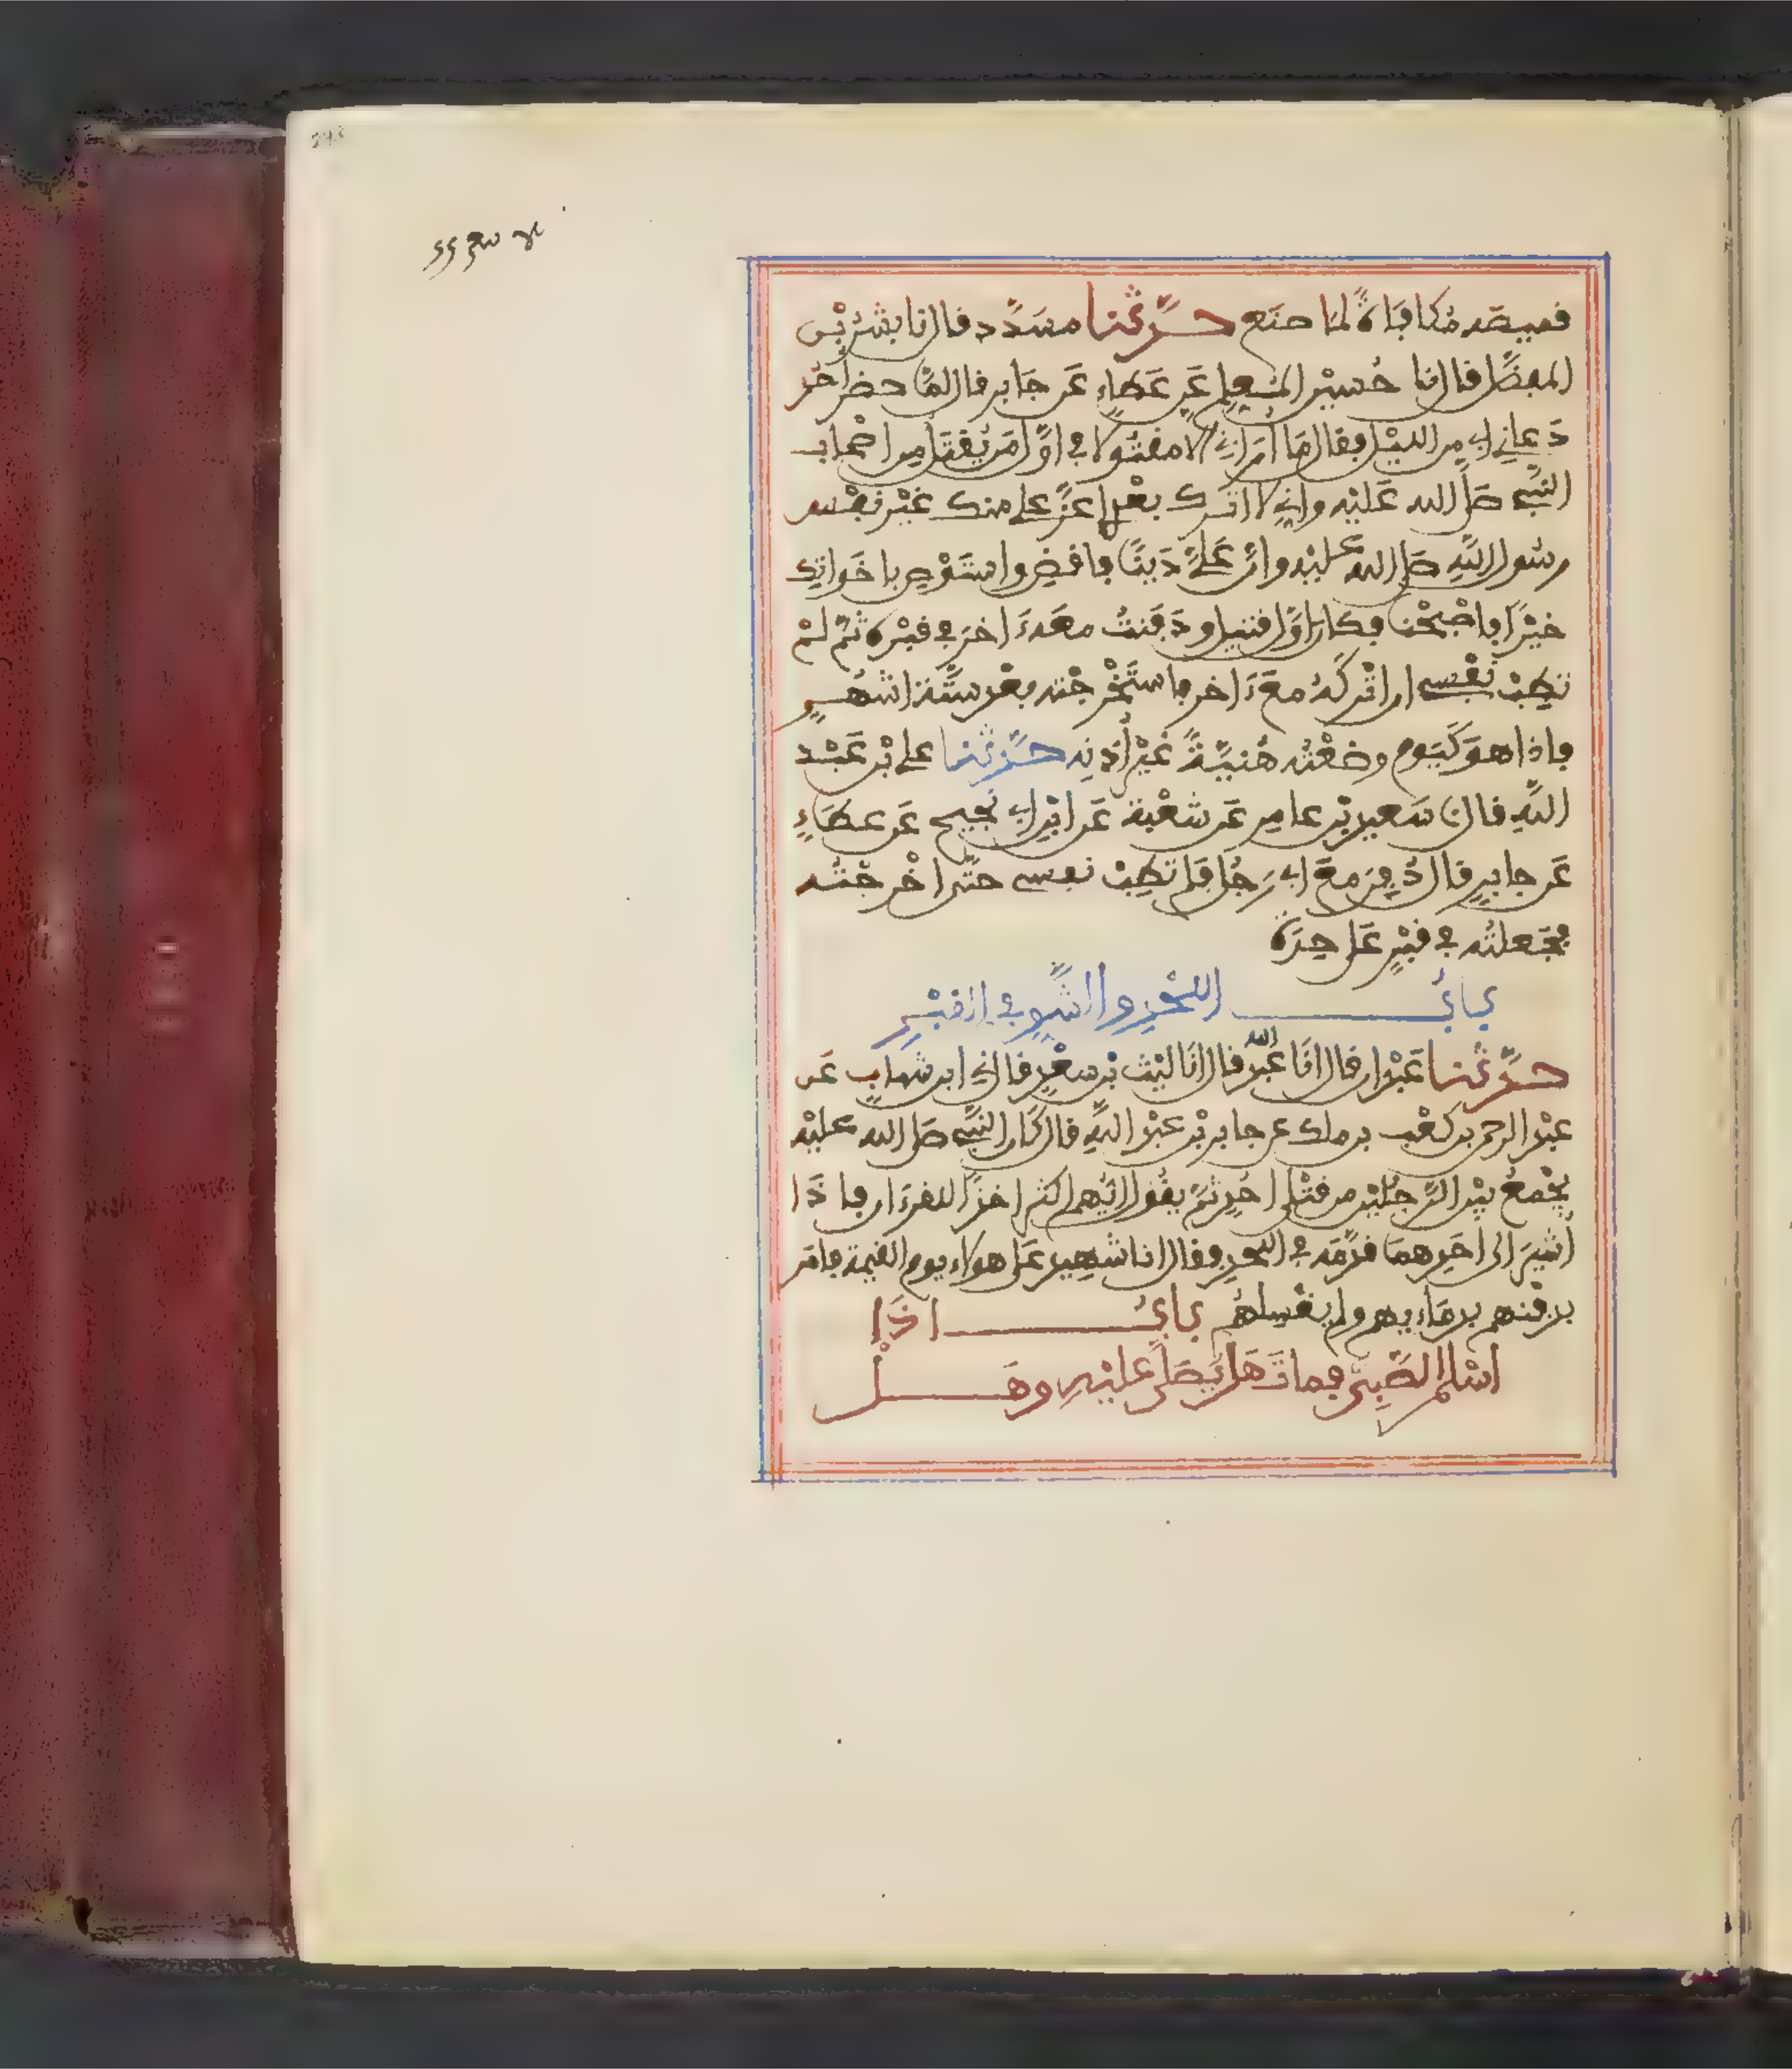 قميصه مكافاة لما صنع حدثنا مسدد قال انا بشر بن
المفضل قال انا حسين المعلم عن عطاء عن جابر قال لما حضر احد
دعاني ابي من الليل فقال ما اراني الا مقتولا في اول من يقتل من اصحاب
النبي صلى الله عليه واني لا اترك بعدي اعز علي منك غير نفس
رسول الله صلى الله عليه وان علي دينا فاقض واستوص باخواتك
خيرا فاصبحنا فكان اول قتيل ودفنت معه ءاخر في قبره ثم لم
تطب نفسي ان اتركه مع ءاخر فاستخرجته بعد ستة اشهر
فاذا هو كيوم وضعته هنية غير اذنه حدثنا علي بن عبد
الله قال نا سعيد بن عامر عن شعبة عن ابن ابي نجيح عن عطاء
عن جابر قال دفن مع ابي رجل فلم تطب نفسي حتى اخرجته
فجعلته في قبر على حدة
باب اللحد والشق في القبر
حدثنا عبدان قال انا عبد الله قال انا ليث بن سعد قال ني ابن شهاب عن
عبد الرحمن بن كعب بن ملك عن جابر بن عبد الله قال كان النبي صلى الله عليه
يجمع بين الرجلين من قتلى احد ثم يقول ايهم اكثر اخذا للقرءان فاذا
اشير الى احدهما قدمه في اللحد وقال انا شهيد على هولاء يوم القيمة فامر
بدفنهم بدمايهم ولم يغسلهم باب اذا
اسلم الصبي فمات هل يصلى عليه وهل